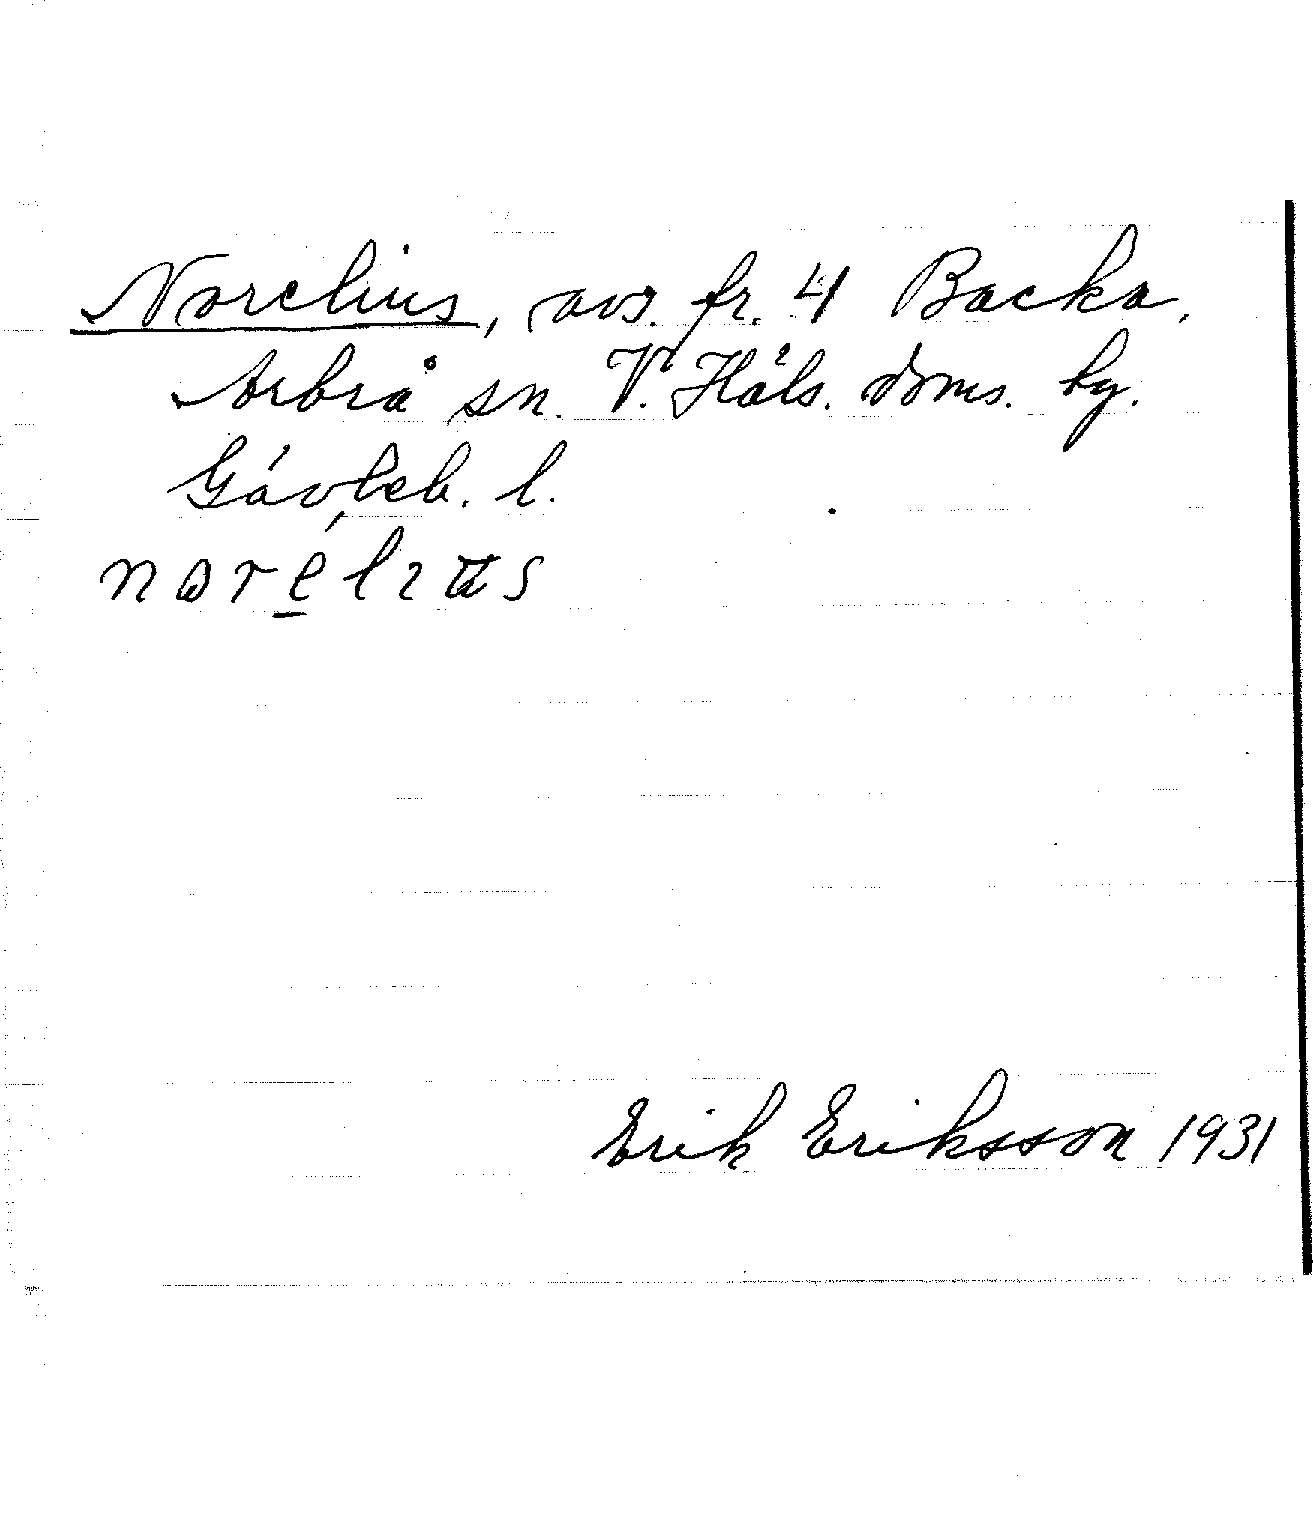 Norelius, avs. fr. 4 Backa,
Arbrå sn. V. Häls. doms. by.
Gävleb. l.
norélius
Erik Eriksson 1931